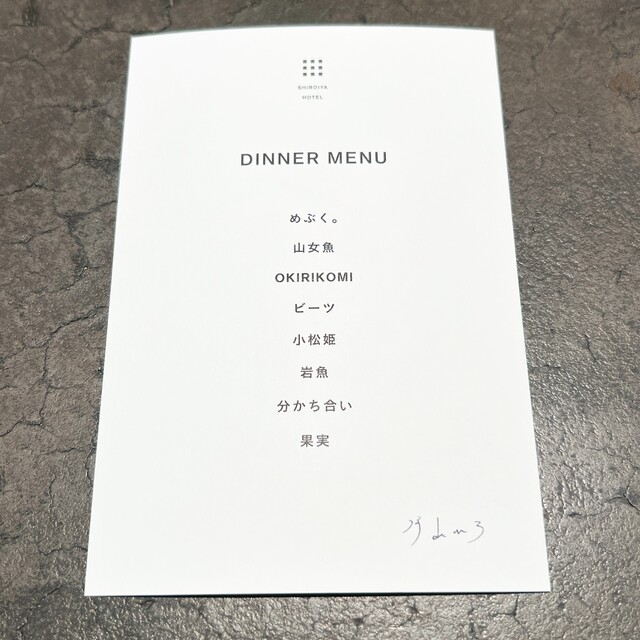 SHIROIYA
HOTEL
DINNER MENU
めぶく。
山女魚
OKIR!KOMI
ビーツ
小松姫
岩魚
分かち合い
果実